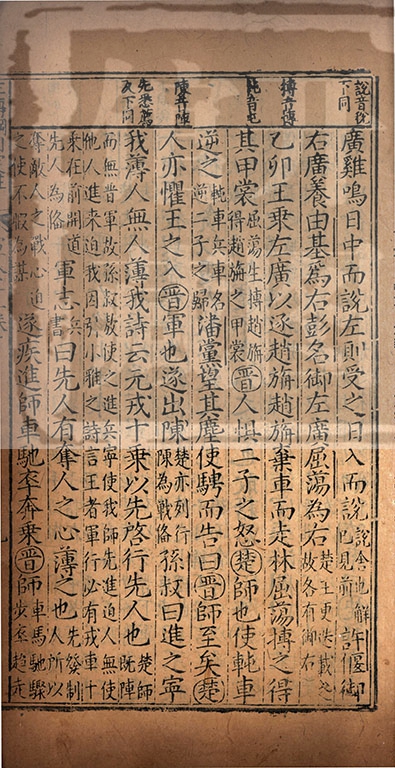 說音稅
下同
搏音博
軘音屯
陳音陣
先悉薦
反下同
廣雞鳴日中而說左則受之日入而說說舍也解已見前許偃御
右廣養由基為右彭名御左廣屈蕩為右楚王更迭載之故各有御右
乙卯王乘左廣以逐趙旃趙旃棄車而走林屈蕩搏之得
其甲裳屈蕩生搏趙旃得趙旃之甲裳晉人懼二子之怒楚師也使軘車
逆之軘車兵車名逆二子之歸潘黨望其塵使騁而告曰晉師至矣楚
人亦懼王之入晉軍也遂出陳楚亦列行陳為戰偹孫叔曰進之寧
我薄人無人薄我詩云元戎十乘以先啓行先人也楚師既陣
而無晉軍故孫叔敖使之進兵寧使我師先進迫人無使
他人進來迫我因引小雅之詩言王者軍行必有戎車十
乘在前開道先人為偹軍志兵書曰先人有奪人之心薄之也先發制人所以
奪敵人之戰心迫之使不暇為謀遂疾進師車馳卒奔乘晉師車馬馳驟步卒趨走